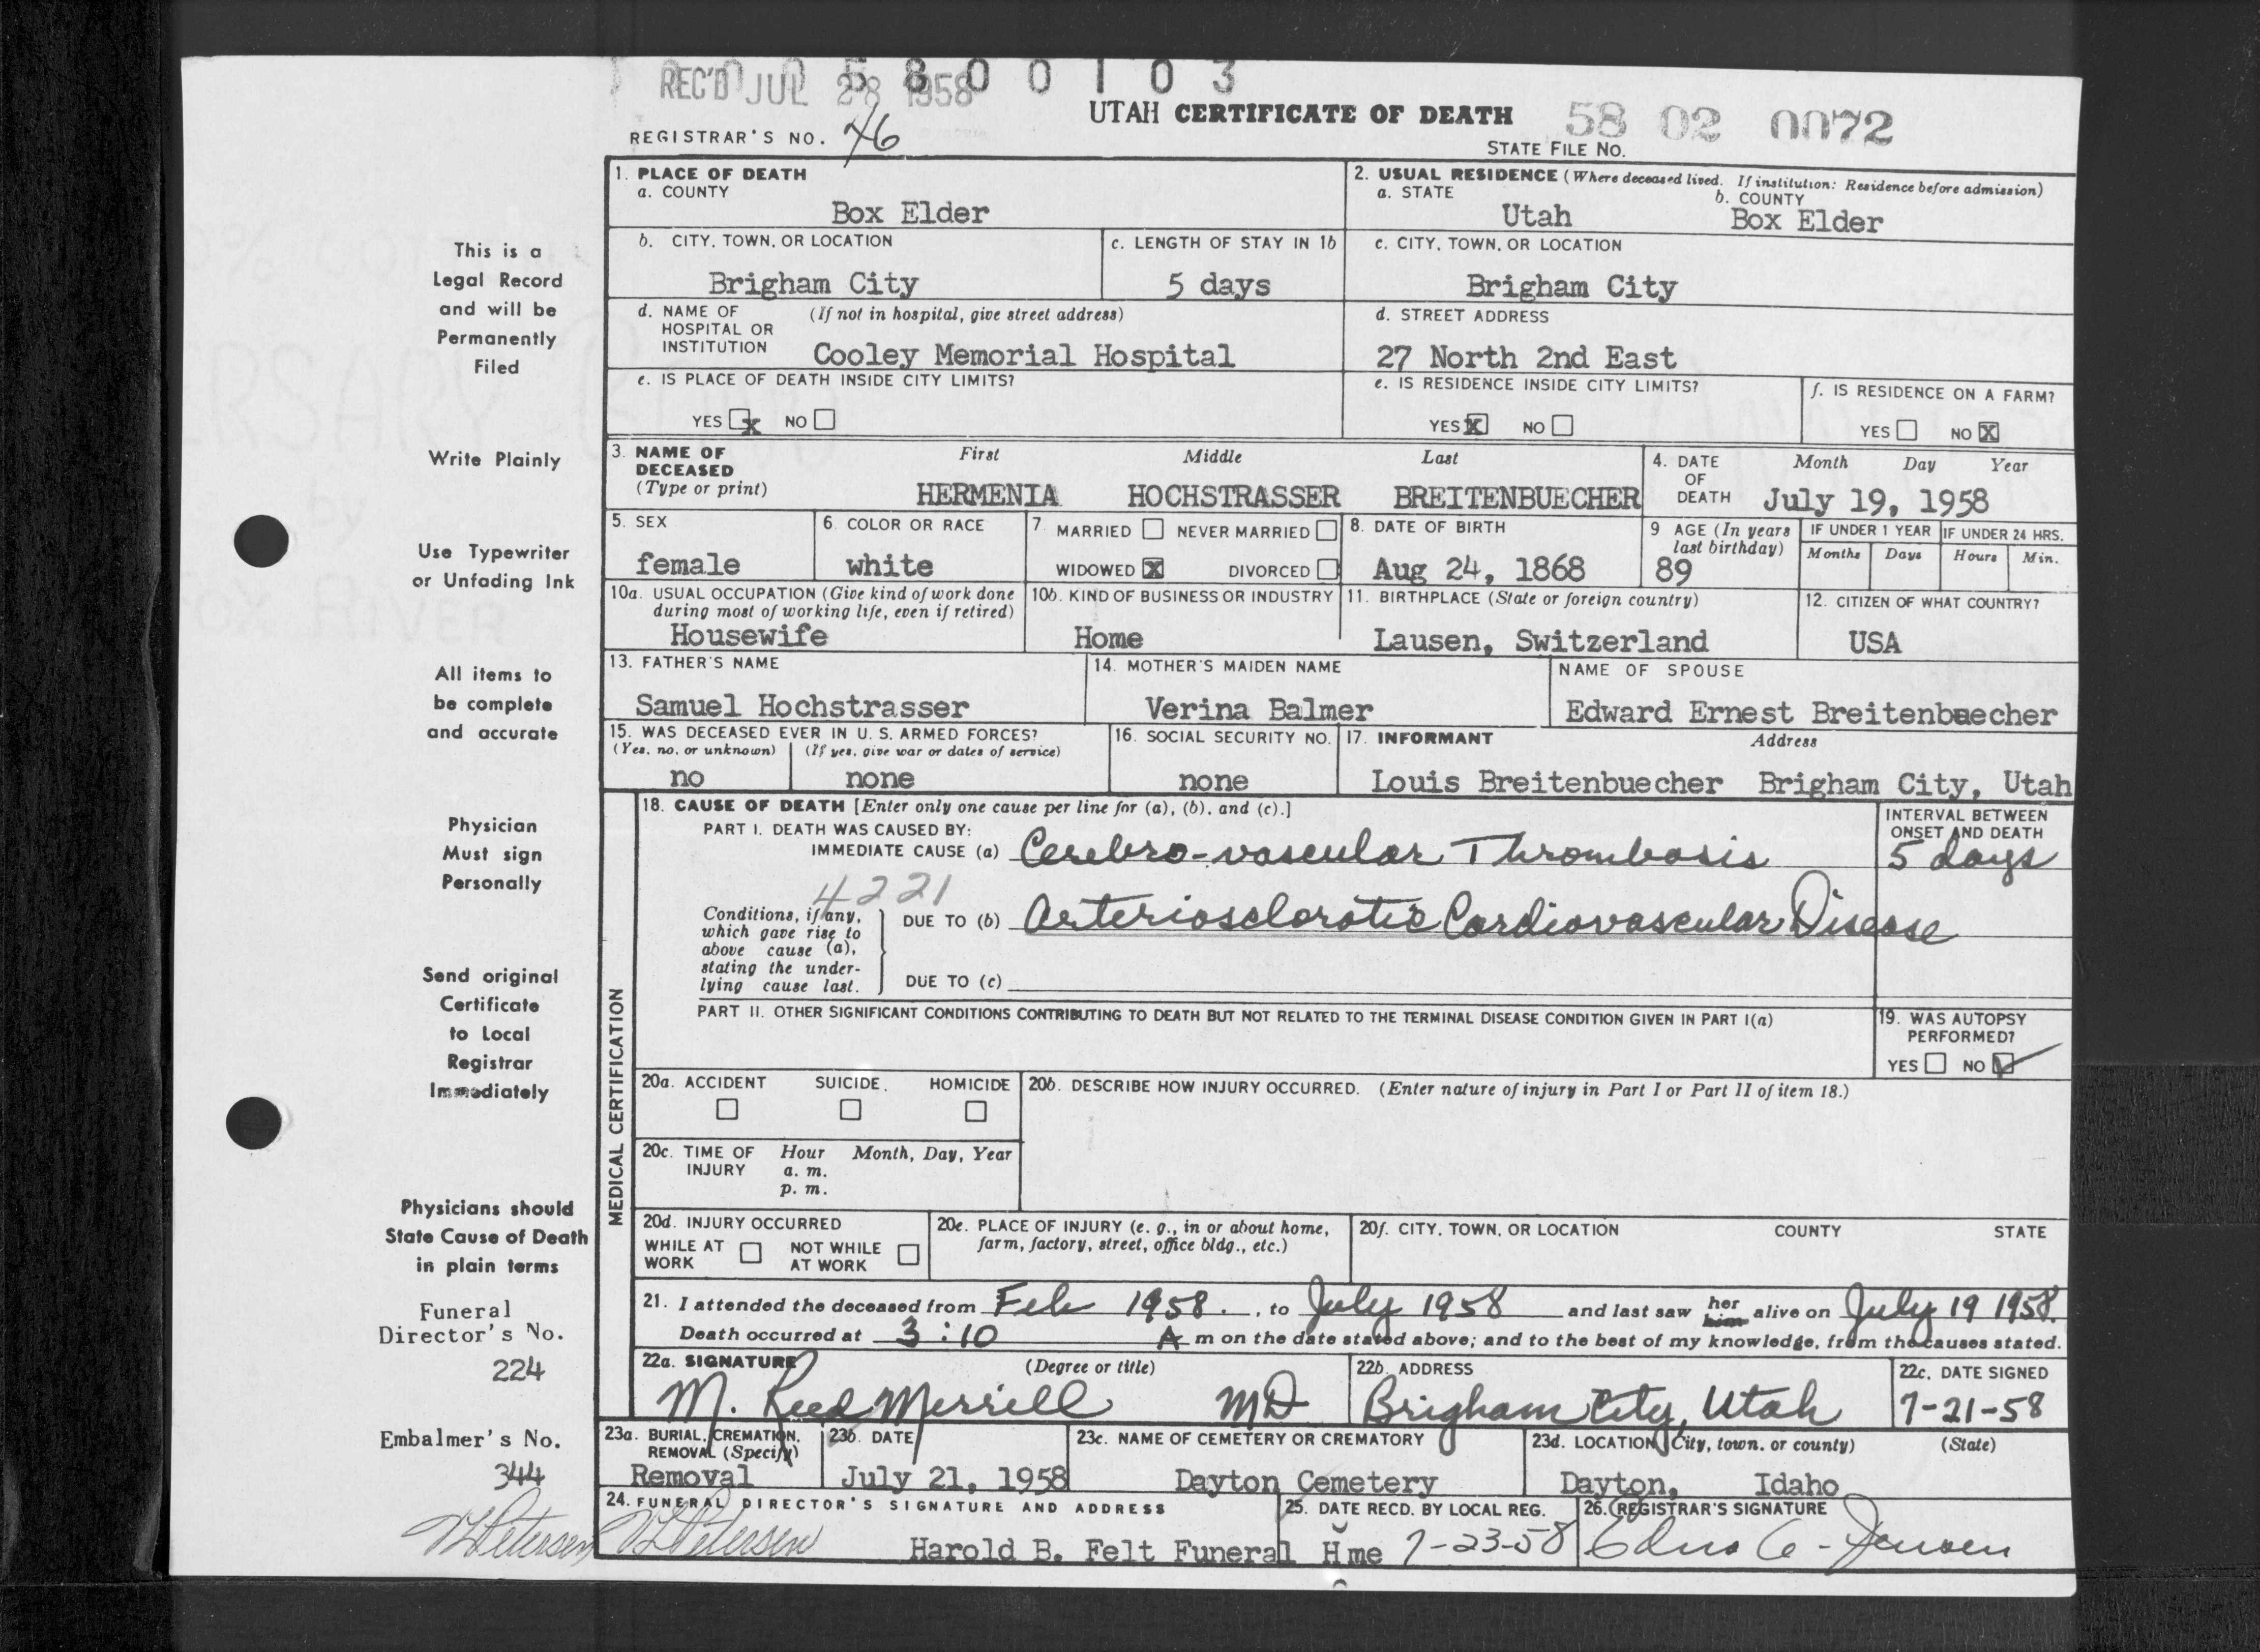 REC'D JUL 28 1958
5 8 0 0 1 0 3
UTAH CERTIFICATE OF DEATH
58 02 0072
REGISTRAR'S NO. 76
STATE FILE NO.
1. PLACE OF DEATH
a. COUNTY
Box Elder
2. USUAL RESIDENCE (Where deceased lived. If institution: Residence before admission)
a. STATE
b. COUNTY
Utah Box Elder
b. CITY, TOWN, OR LOCATION
Brigham City
c. LENGTH OF STAY IN 1b
5 days
c. CITY, TOWN, OR LOCATION
Brigham City
d. NAME OF HOSPITAL OR INSTITUTION (If not in hospital, give street address)
Cooley Memorial Hospital
d. STREET ADDRESS
27 North 2nd East
e. IS PLACE OF DEATH INSIDE CITY LIMITS?
YES x NO
e. IS RESIDENCE INSIDE CITY LIMITS?
YES X NO
f. IS RESIDENCE ON A FARM?
YES NO X
3. NAME OF DECEASED (Type or print)
First Middle Last
HERMENIA HOCHSTRASSER BREITENBUECHER
4. DATE OF DEATH
Month Day Year
July 19, 1958
5. SEX
female
6. COLOR OR RACE
white
7. MARRIED NEVER MARRIED
WIDOWED X DIVORCED
8. DATE OF BIRTH
Aug 24, 1868
9 AGE (In years last birthday)
89
IF UNDER 1 YEAR
Months Days
IF UNDER 24 HRS.
Hours Min.
10a. USUAL OCCUPATION (Give kind of work done during most of working life, even if retired)
Housewife
10b. KIND OF BUSINESS OR INDUSTRY
Home
11. BIRTHPLACE (State or foreign country)
Lausen, Switzerland
12. CITIZEN OF WHAT COUNTRY?
USA
13. FATHER'S NAME
Samuel Hochstrasser
14. MOTHER'S MAIDEN NAME
Verina Balmer
NAME OF SPOUSE
Edward Ernest Breitenbuecher
15. WAS DECEASED EVER IN U. S. ARMED FORCES?
(Yes, no, or unknown) (If yes, give war or dates of service)
no none
16. SOCIAL SECURITY NO.
none
17. INFORMANT Address
Louis Breitenbuecher Brigham City, Utah
MEDICAL CERTIFICATION
18. CAUSE OF DEATH [Enter only one cause per line for (a), (b), and (c).]
PART I. DEATH WAS CAUSED BY:
IMMEDIATE CAUSE (a) Cerebro-vascular Thrombosis
INTERVAL BETWEEN ONSET AND DEATH
5 days
4221
Conditions, if any, which gave rise to above cause (a), stating the underlying cause last.
DUE TO (b) Arteriosclorotic Cardiovascular Disease
DUE TO (c)
PART II. OTHER SIGNIFICANT CONDITIONS CONTRIBUTING TO DEATH BUT NOT RELATED TO THE TERMINAL DISEASE CONDITION GIVEN IN PART I(a)
19. WAS AUTOPSY PERFORMED?
YES NO ✓
20a. ACCIDENT SUICIDE. HOMICIDE
20b. DESCRIBE HOW INJURY OCCURRED. (Enter nature of injury in Part I or Part II of item 18.)
20c. TIME OF INJURY Hour Month, Day, Year
a. m.
p. m.
20d. INJURY OCCURRED
WHILE AT WORK NOT WHILE AT WORK
20e. PLACE OF INJURY (e. g., in or about home, farm, factory, street, office bldg., etc.)
20f. CITY, TOWN, OR LOCATION COUNTY STATE
21. I attended the deceased from Feb 1958., to July 1958 and last saw her him alive on July 19 1958.
Death occurred at 3:10 A m on the date stated above; and to the best of my knowledge, from the causes stated.
22a. SIGNATURE (Degree or title)
M. Reed Merrill MD
22b. ADDRESS
Brigham City, Utah
22c. DATE SIGNED
7-21-58
23a. BURIAL, CREMATION, REMOVAL (Specify)
Removal
23b. DATE
July 21, 1958
23c. NAME OF CEMETERY OR CREMATORY
Dayton Cemetery
23d. LOCATION (City, town, or county) (State)
Dayton, Idaho
24. FUNERAL DIRECTOR'S SIGNATURE AND ADDRESS
Petersen Harold B. Felt Funeral Hme
25. DATE RECD. BY LOCAL REG.
7-23-58
26. REGISTRAR'S SIGNATURE
Jensen
This is a
Legal Record
and will be
Permanently
Filed
Write Plainly
Use Typewriter
or Unfading Ink
All items to
be complete
and accurate
Physician
Must sign
Personally
Send original
Certificate
to Local
Registrar
Immediately
Physicians should
State Cause of Death
in plain terms
Funeral
Director's No.
224
Embalmer's No.
344
Petersen